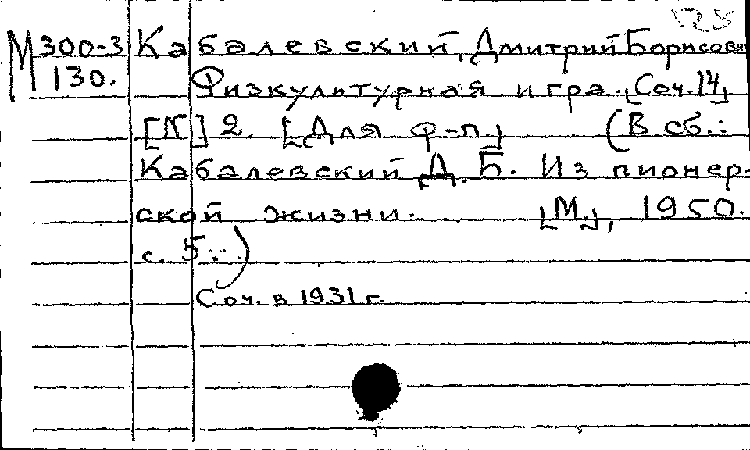 М 300-3 Кабалевский, Дмитрий Борисович
130. Физкультурная игра. [Соч. 14]
[N] 2. [Для ф-п.] (В сб.:
Кабалевский Д. Б. Из пионер-
ской жизни. [М.], 1950.
с. 5..)
Соч. в 1931 г.